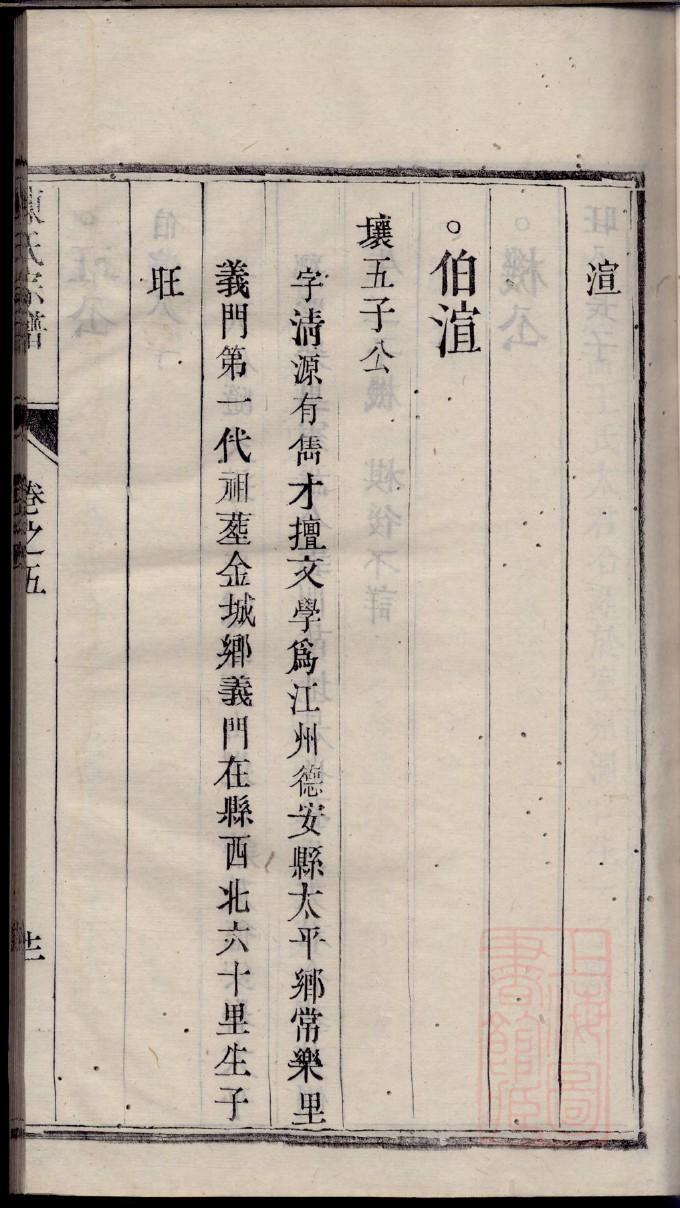 渲
。伯渲
壤五子公
字淸源有雋才擅文學爲江州德安縣太平鄉常樂里
義門第一代祖塟金城鄉義門在縣西北六十里生子
旺
陳氏宗譜
卷之五
上海圖書館藏